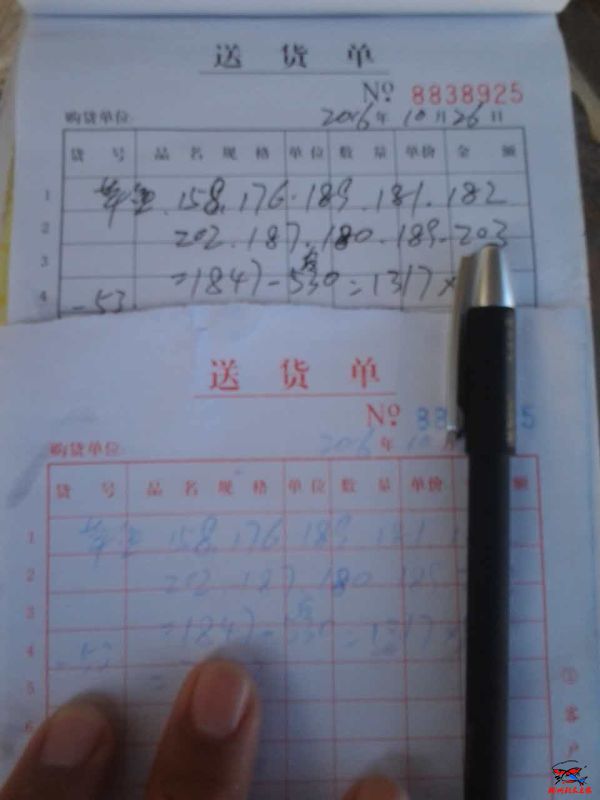 送货单
No 8838925
购货单位 2016年10月26日
货号 品名规格 单位 数量 单价 金额
1 158.176.189.181.182
2 202.187.180.189.203
3 =1847-530=1317×
4 -53
送货单
No 88 5
购货单位 2016年10月
货号 品名规格 单位 数量 单价 额
1 158.176 189 181
2 202.187.180 189
3 =1847-530=1317×
4 -53
5
6
①客户